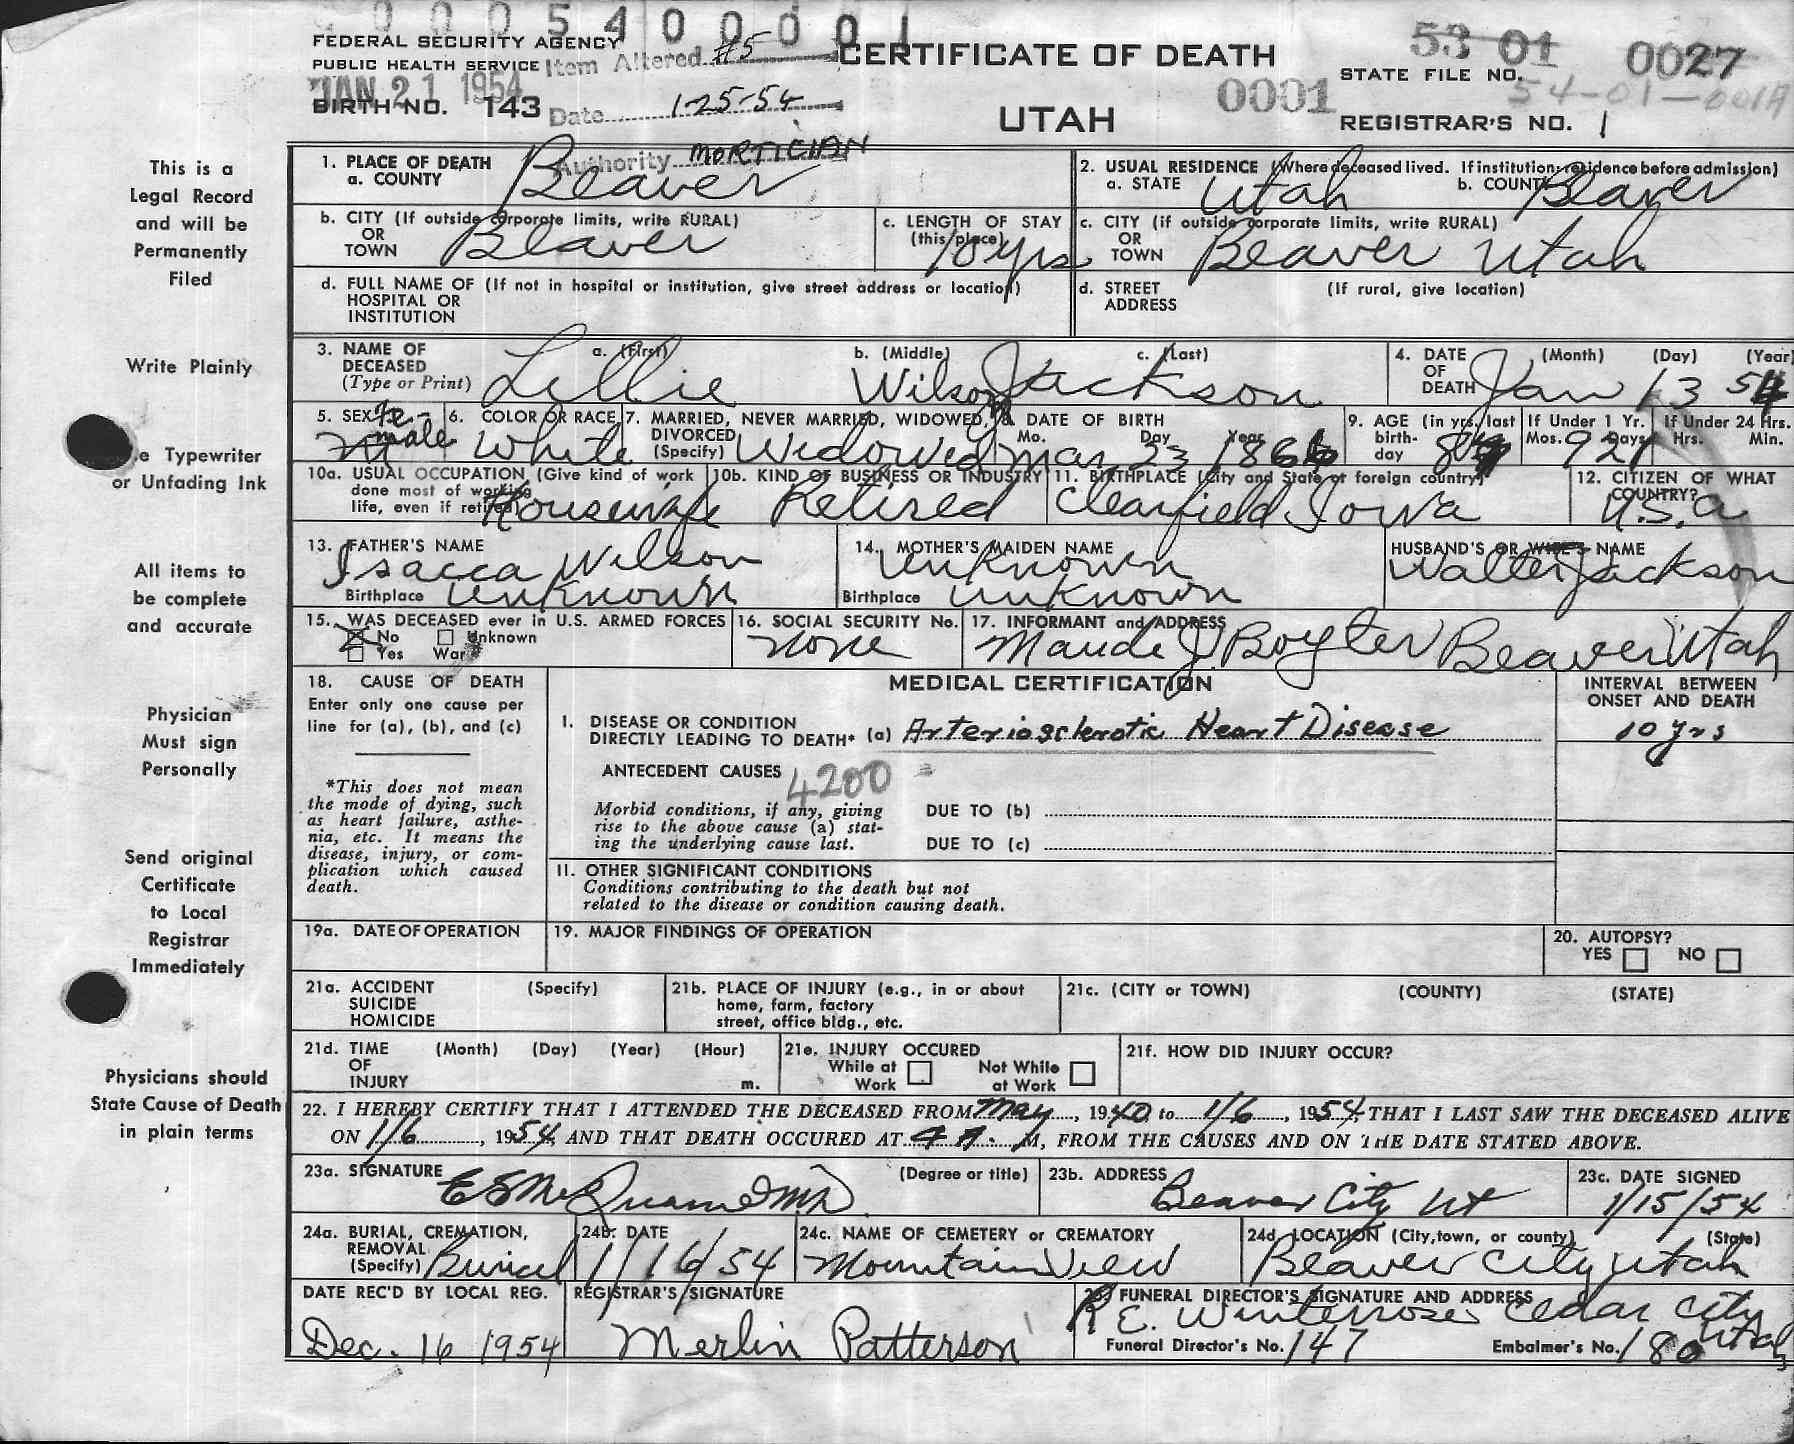 0 0 0 5 4 0 0 0 0 1
FEDERAL SECURITY AGENCY
PUBLIC HEALTH SERVICE
Item Altered #5
CERTIFICATE OF DEATH
53 01 0027
STATE FILE NO.
54-01-001A
JAN 21 1954
BIRTH NO. 143
Date 1-25-54
UTAH
0001
REGISTRAR'S NO. 1
Authority MORTICIAN
This is a
Legal Record
and will be
Permanently
Filed
Write Plainly
Typewriter
or Unfading Ink
All items to
be complete
and accurate
Physician
Must sign
Personally
Send original
Certificate
to Local
Registrar
Immediately
Physicians should
State Cause of Death
in plain terms
1. PLACE OF DEATH
a. COUNTY Beaver
2. USUAL RESIDENCE (Where deceased lived. If institution: residence before admission)
a. STATE Utah b. COUNTY Beaver
b. CITY (If outside corporate limits, write RURAL)
OR
TOWN Beaver
c. LENGTH OF STAY
(this place) 70 yrs
c. CITY (if outside corporate limits, write RURAL)
OR
TOWN Beaver Utah
d. FULL NAME OF (If not in hospital or institution, give street address or location)
HOSPITAL OR
INSTITUTION
d. STREET (If rural, give location)
ADDRESS
3. NAME OF DECEASED (Type or Print)
a. (First) b. (Middle) c. (Last)
Lillie Wilson Jackson
4. DATE OF DEATH (Month) (Day) (Year)
Jan 13 54
5. SEX Female
6. COLOR OR RACE White
7. MARRIED, NEVER MARRIED, WIDOWED,
DIVORCED (Specify) Widowed
8. DATE OF BIRTH
Mo. Day Year
Mar 23 1866
9. AGE (in yrs. last birth-day
If Under 1 Yr. Mos. 9 Days 21
If Under 24 Hrs. Hrs. Min.
10a. USUAL OCCUPATION (Give kind of work
done most of working
life, even if retired) Housewife
10b. KIND OF BUSINESS OR INDUSTRY
Retired
11. BIRTHPLACE (City and State or foreign country)
Clearfield Iowa
12. CITIZEN OF WHAT
COUNTRY?
U.S.a
13. FATHER'S NAME
Isacca Wilson
Birthplace Unknown
14. MOTHER'S MAIDEN NAME
Unknown
Birthplace Unknown
HUSBAND'S OR WIFE'S NAME
Walter Jackson
15. WAS DECEASED ever in U.S. ARMED FORCES
No Unknown
Yes War
16. SOCIAL SECURITY No.
none
17. INFORMANT and ADDRESS
Maude J Boyter Beaver Utah
18. CAUSE OF DEATH
Enter only one cause per
line for (a), (b), and (c)
*This does not mean
the mode of dying, such
as heart failure, asthe-
nia, etc. It means the
disease, injury, or com-
plication which caused
death.
MEDICAL CERTIFICATION
INTERVAL BETWEEN
ONSET AND DEATH
I. DISEASE OR CONDITION
DIRECTLY LEADING TO DEATH* (a) Arteriosclerotic Heart Disease 10 yrs
ANTECEDENT CAUSES 4200
Morbid conditions, if any, giving
rise to the above cause (a) stat-
ing the underlying cause last.
DUE TO (b)
DUE TO (c)
II. OTHER SIGNIFICANT CONDITIONS
Conditions contributing to the death but not
related to the disease or condition causing death.
19a. DATE OF OPERATION
19. MAJOR FINDINGS OF OPERATION
20. AUTOPSY?
YES NO
21a. ACCIDENT (Specify)
SUICIDE
HOMICIDE
21b. PLACE OF INJURY (e.g., in or about
home, farm, factory
street, office bldg., etc.
21c. (CITY or TOWN) (COUNTY) (STATE)
21d. TIME (Month) (Day) (Year) (Hour)
OF
INJURY m.
21e. INJURY OCCURED
While at Work Not While at Work
21f. HOW DID INJURY OCCUR?
22. I HEREBY CERTIFY THAT I ATTENDED THE DECEASED FROM May, 1940 to 1/6, 1954, THAT I LAST SAW THE DECEASED ALIVE
ON 1/6, 1954, AND THAT DEATH OCCURED AT 4 A. M, FROM THE CAUSES AND ON THE DATE STATED ABOVE.
23a. SIGNATURE (Degree or title)
23b. ADDRESS
Beaver City Ut
23c. DATE SIGNED
1/15/54
24a. BURIAL, CREMATION,
REMOVAL
(Specify) Burial
24b. DATE
1/16/54
24c. NAME OF CEMETERY or CREMATORY
Mountain View
24d. LOCATION (City, town, or county) (State)
Beaver City Utah
DATE REC'D BY LOCAL REG.
Dec. 16 1954
REGISTRAR'S SIGNATURE
Merlin Patterson
25. FUNERAL DIRECTOR'S SIGNATURE AND ADDRESS
R E. Winterrose Cedar City Utah
Funeral Director's No. 147 Embalmer's No. 180